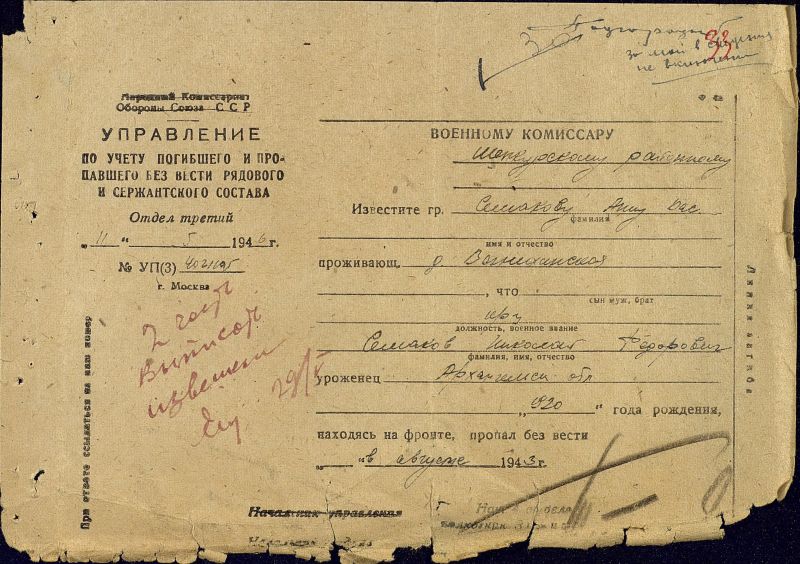 33
за май в сведения
не включены
Народный Комиссариат
Обороны Союза ССР
УПРАВЛЕНИЕ
ПО УЧЕТУ ПОГИБШЕГО И ПРО-
ПАВШЕГО БЕЗ ВЕСТИ РЯДОВОГО
И СЕРЖАНТСКОГО СОСТАВА
Отдел третий
„11“ 5 1946 г.
№ УП(3)
г. Москва
2 часть
Выписать
извещение
29/V
При ответе ссылаться на наш номер
ВОЕННОМУ КОМИССАРУ
Шенкурскому районному
Известите гр. Семакову Анну Вас.
фамилия
имя и отчество
проживающ. д.
, что
сын муж, брат
кр-ц
должность, военное звание
Семаков Николай Федорович
фамилия, имя, отчество
уроженец Архангельск. обл
„920“ года рождения,
находясь на фронте, пропал без вести
„в августе 1943 г.
Начальник управления
Линия загиба